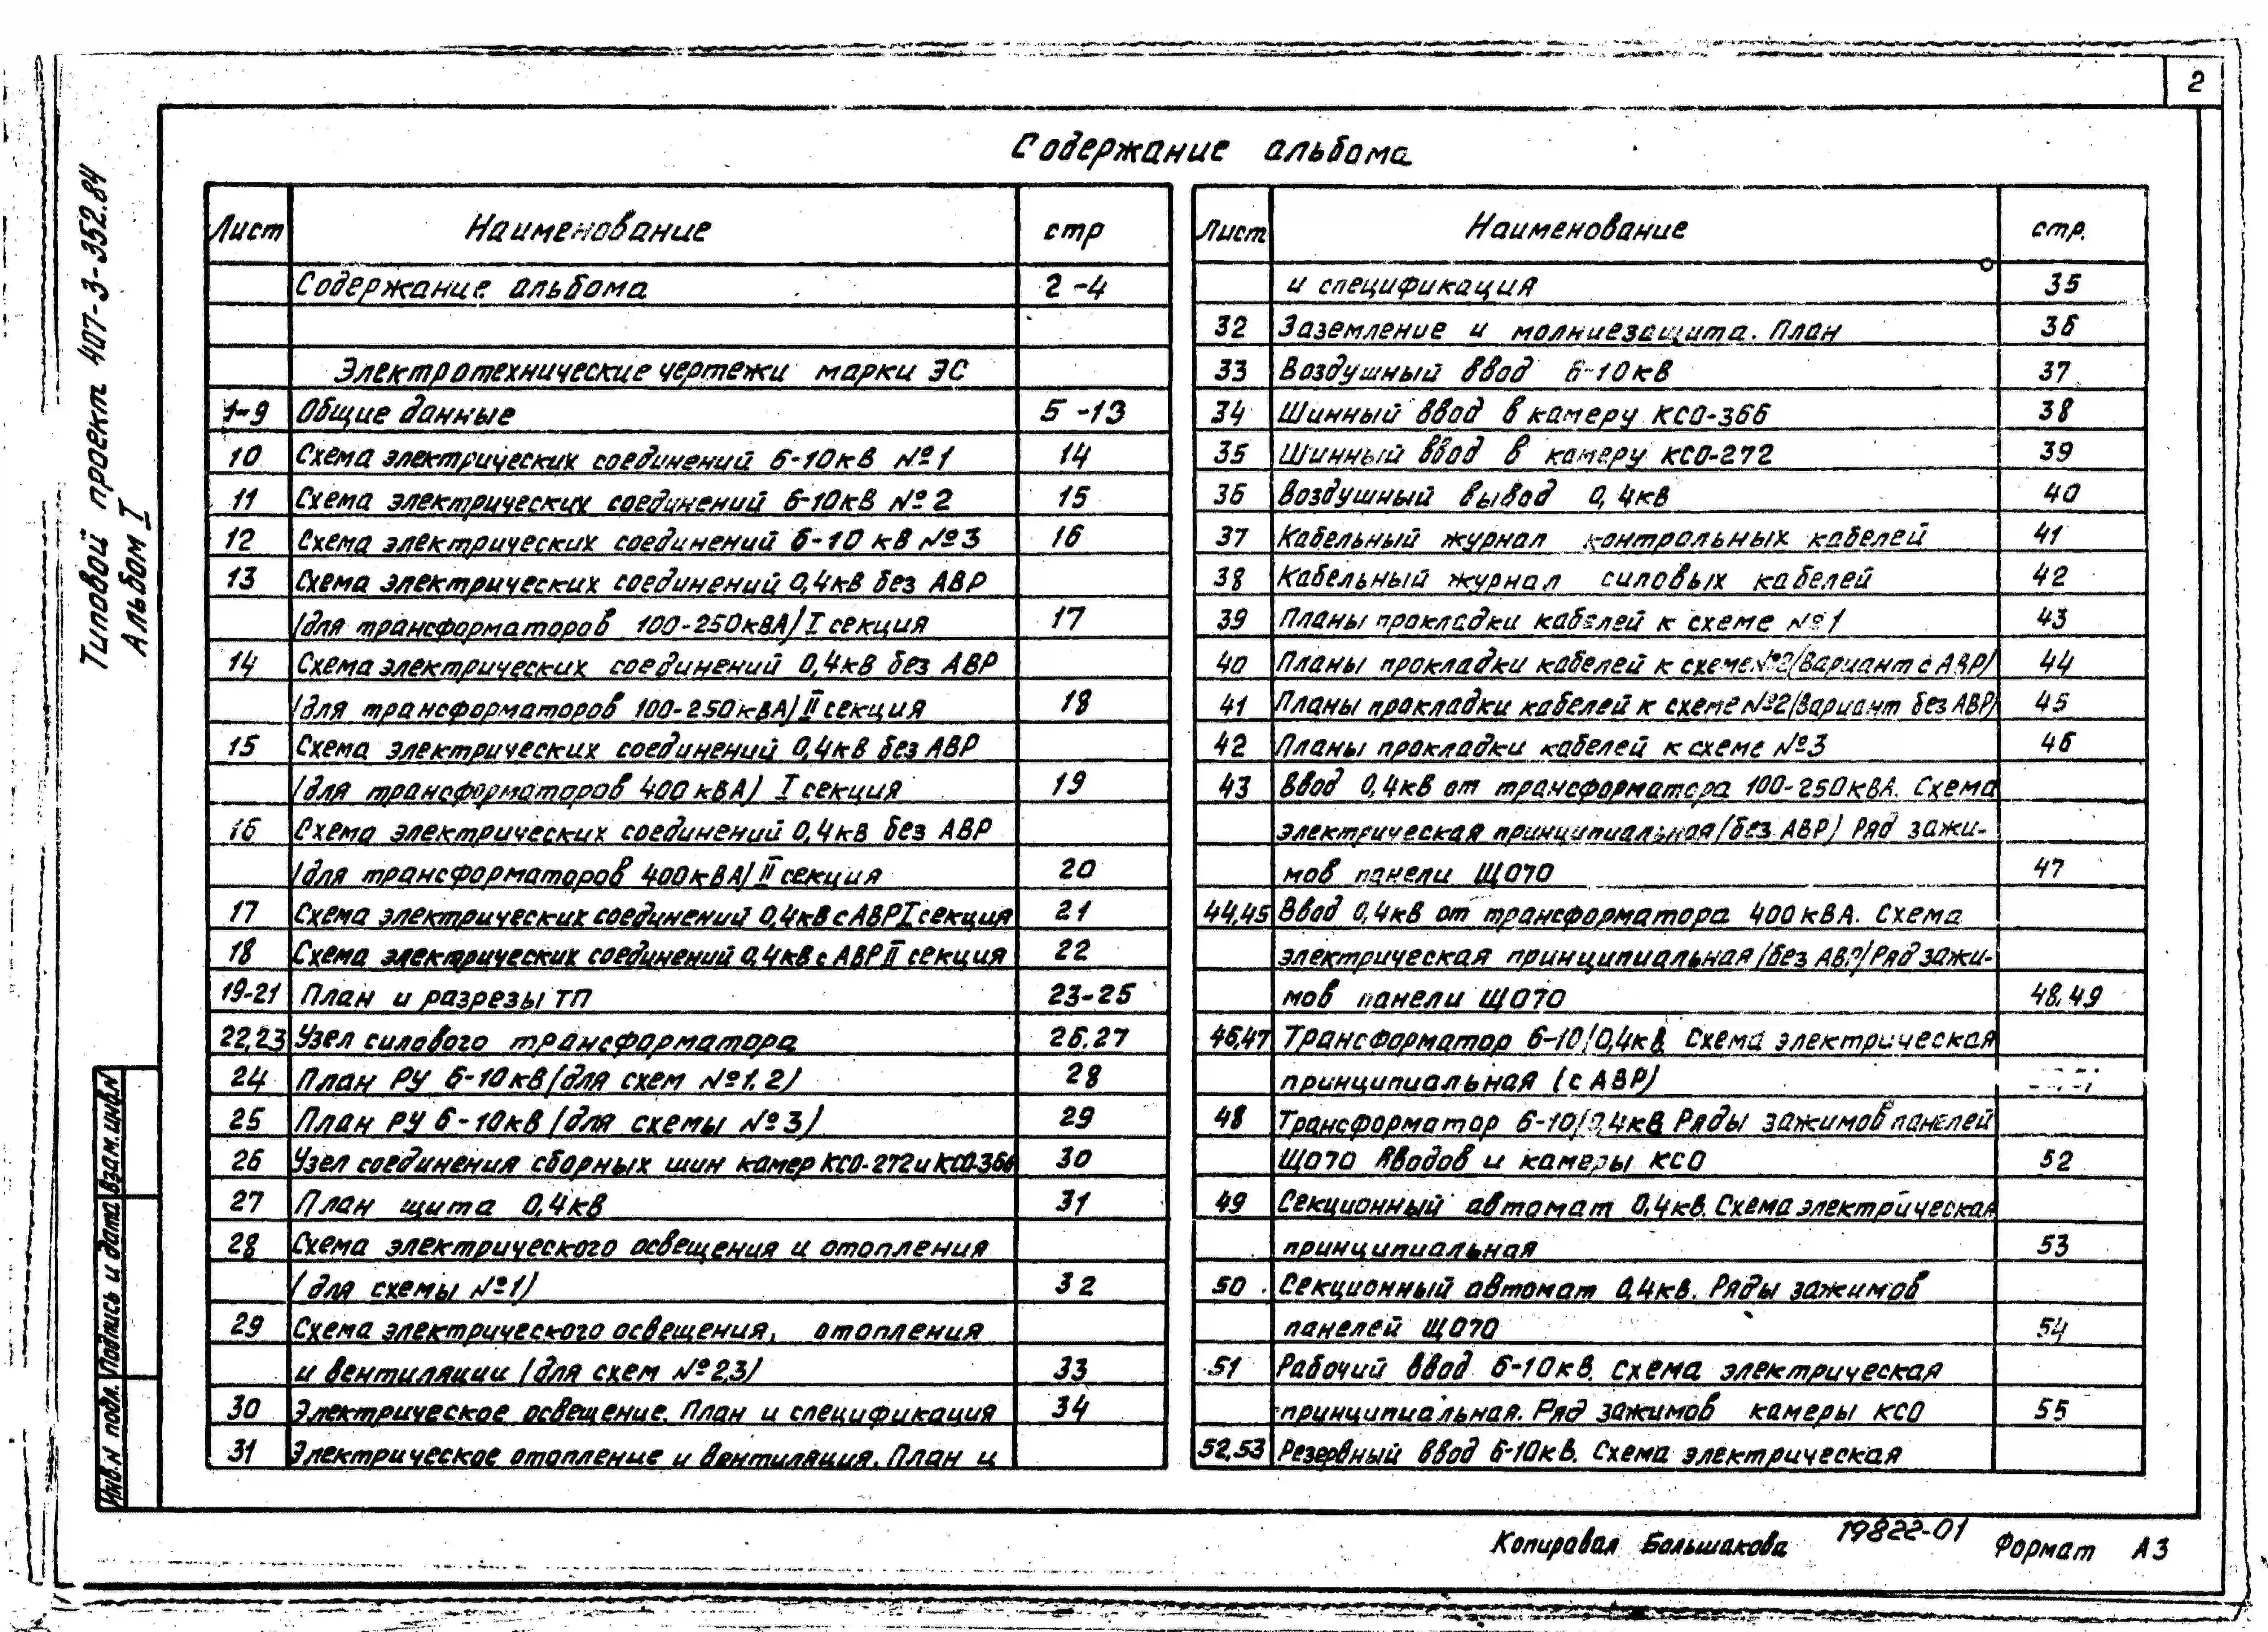 2
Содержание альбома
Типовой проект 407-3-352.84
Альбом I
Лист Наименование стр
Содержание альбома 2-4
Электротехнические чертежи марки ЭС
1-9 Общие данные 5-13
10 Схема электрических соединений 6-10кВ №1 14
11 Схема электрических соединений 6-10кВ №2 15
12 Схема электрических соединений 6-10 кВ №3 16
13 Схема электрических соединений 0,4кВ без АВР
/для трансформаторов 100-250кВА/ I секция 17
14 Схема электрических соединений 0,4кВ без АВР
/для трансформаторов 100-250кВА/ II секция 18
15 Схема электрических соединений 0,4кВ без АВР
/для трансформаторов 400кВА/ I секция 19
16 Схема электрических соединений 0,4кВ без АВР
/для трансформаторов 400кВА/ II секция 20
17 Схема электрических соединений 0,4кВ с АВР I секция 21
18 Схема электрических соединений 0,4кВ с АВР II секция 22
19-21 План и разрезы ТП 23-25
22,23 Узел силового трансформатора 26.27
24 План РУ 6-10кВ /для схем №1.2/ 28
25 План РУ 6-10кВ /для схемы №3/ 29
26 Узел соединения сборных шин камер КСО-272 и КСО-366 30
27 План щита 0,4кВ 31
28 Схема электрического освещения и отопления
/для схемы №1/ 32
29 Схема электрического освещения, отопления
и вентиляции /для схем №2,3/ 33
30 Электрическое освещение. План и спецификация 34
31 Электрическое отопление и вентиляция. План и
Лист Наименование стр.
и спецификация 35
32 Заземление и молниезащита. План 36
33 Воздушный ввод 6-10кВ 37
34 Шинный ввод в камеру КСО-366 38
35 Шинный ввод в камеру КСО-272 39
36 Воздушный вывод 0,4кВ 40
37 Кабельный журнал контрольных кабелей 41
38 Кабельный журнал силовых кабелей 42
39 Планы прокладки кабелей к схеме №1 43
40 Планы прокладки кабелей к схеме №2/Вариант с АВР/ 44
41 Планы прокладки кабелей к схеме №2/Вариант без АВР/ 45
42 Планы прокладки кабелей к схеме №3 46
43 Ввод 0,4кВ от трансформатора 100-250кВА. Схема
электрическая принципиальная /без АВР/ Ряд зажи-
мов панели ЩО70 47
44,45 Ввод 0,4кВ от трансформатора 400кВА. Схема
электрическая принципиальная /без АВР/ Ряд зажи-
мов панели ЩО70 48,49
46,47 Трансформатор 6-10/0,4кВ Схема электрическая
принципиальная (с АВР)
48 Трансформатор 6-10/0,4кВ Ряды зажимов панелей
ЩО70 Вводов и камеры КСО 52
49 Секционный автомат 0,4кВ. Схема электрическая
принципиальная 53
50 Секционный автомат 0,4кВ. Ряды зажимов
панелей ЩО70 54
51 Рабочий ввод 6-10кВ. Схема электрическая
принципиальная. Ряд зажимов камеры КСО 55
52,53 Резервный ввод 6-10кВ. Схема электрическая
Взам.инв.N
Подпись и дата
Инв.N подл.
Копировал Большакова 19822-01 Формат А3